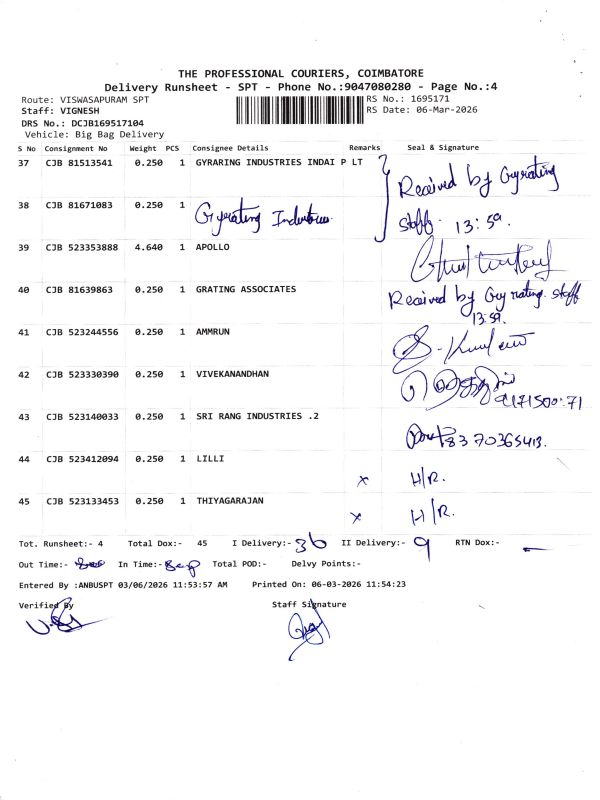 THE PROFESSIONAL COURIERS, COIMBATORE
Delivery Runsheet - SPT - Phone No.:9047080280 - Page No.:4
Route: VISWASAPURAM SPT
RS No.: 1695171
Staff: VIGNESH
RS Date: 06-Mar-2026
DRS No.: DCJB169517104
Vehicle: Big Bag Delivery
S No Consignment No Weight PCS Consignee Details Remarks Seal & Signature
37 CJB 81513541 0.250 1 GYRARING INDUSTRIES INDAI P LT
Received by Gyrating
38 CJB 81671083 0.250 1 Gyrating Industries
staff. 13:59.
39 CJB 523353888 4.640 1 APOLLO
40 CJB 81639863 0.250 1 GRATING ASSOCIATES Received by Gyrating. staff
13:59.
41 CJB 523244556 0.250 1 AMMRUN
42 CJB 523330390 0.250 1 VIVEKANANDHAN
43 CJB 523140033 0.250 1 SRI RANG INDUSTRIES .2
44 CJB 523412094 0.250 1 LILLI x H/R.
45 CJB 523133453 0.250 1 THIYAGARAJAN x H/R.
Tot. Runsheet:- 4 Total Dox:- 45 I Delivery:- 36 II Delivery:- 9 RTN Dox:- -
Out Time:- In Time:- Total POD:- Delvy Points:-
Entered By :ANBUSPT 03/06/2026 11:53:57 AM Printed On: 06-03-2026 11:54:23
Verified By Staff Signature